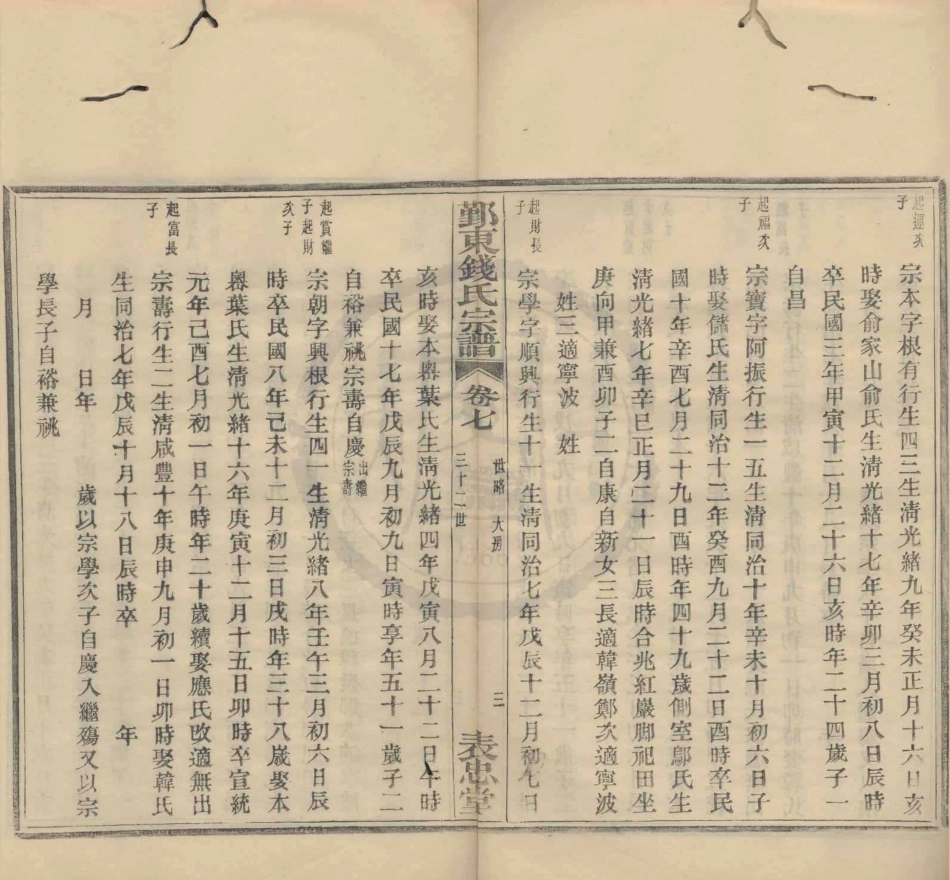 起運次
子
宗本字根有行生四三生淸光緖九年癸未正月十六日亥
時娶俞家山俞氏生淸光緖十七年辛卯三月初八日辰時
卒民國三年甲寅十二月二十六日亥時年二十四歲子一
自昌
起福次
子
宗寶字阿振行生一五生淸同治十年辛未十月初六日子
時娶儲氏生淸同治十二年癸酉九月二十二日酉時卒民
國十年辛酉七月二十九日酉時年四十九歲側室鄔氏生
淸光緖七年辛巳正月二十一日辰時合兆紅巖脚祀田坐
庚向甲兼酉卯子二自康自新女三長適韓嶺鄭次適寧波
姓三適寧波　姓
起財長
子
宗學字順興行生十一生淸同治七年戊辰十二月初七日
鄞東錢氏宗譜
卷七
世略　大房
三十二世
三
表忠堂
亥時娶本嶴葉氏生淸光緖四年戊寅八月二十二日午時
卒民國十七年戊辰九月初九日寅時享年五十一歲子二
自裕兼祧宗壽自慶出繼宗壽
起賞繼
子起財
次子
宗朝字興根行生四一生淸光緖八年壬午三月初六日辰
時卒民國八年己未十二月初三日戌時年三十八歲娶本
嶴葉氏生淸光緖十六年庚寅十二月十五日卯時卒宣統
元年己酉七月初一日午時年二十歲續娶應氏改適無出
起富長
子
宗壽行生二生淸咸豐十年庚申九月初一日卯時娶韓氏
生同治七年戊辰十月十八日辰時卒　　　年
月　日年　　歲以宗學次子自慶入繼殤又以宗
學長子自裕兼祧